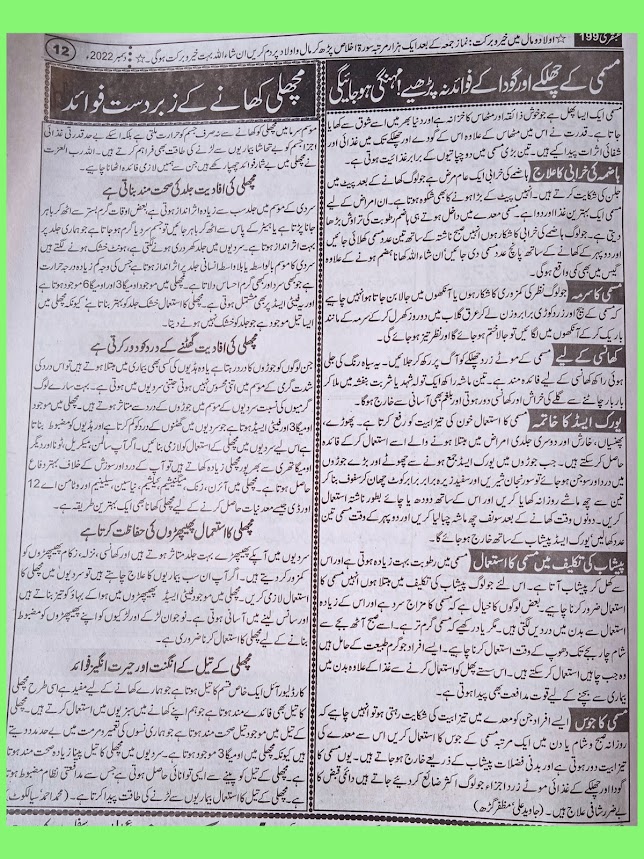 عبقری 199
☆ اولاد و مال میں خیر و برکت: نماز جمعہ کے بعد ایک ہزار مرتبہ سورۃ اخلاص پڑھ کر مال و اولاد پر دم کریں ان شاء اللہ بہت خیر و برکت ہوگی۔ ☆
دسمبر 2022ء
12
مسمی کے چھلکے اور گودا کے فوائد نہ پڑھیے! مہنگی ہو جائیگی
مسمی ایک ایسا پھل ہے جو خوش ذائقہ اور مٹھاس کا خزانہ ہے اور دنیا بھر میں اسے شوق سے کھایا
جاتا ہے۔ قدرت نے اس میں مٹھاس کے علاوہ اس کے گودے اور چھلکے تک میں غذائی اور
شفائی اثرات پیدا کیے ہیں۔ تین بڑی مسمی میں دو چپاتیوں کے برابر غذائیت ہوتی ہے۔
ہاضمہ کی خرابی کا علاج ہاضمے کی خرابی ایک عام مرض ہے جو لوگ کھانے کے بعد پیٹ میں
جلن کی شکایت کرتے ہیں۔ انہیں پیٹ کے بڑا ہونے کا بھی شکوہ ہوتا ہے۔ ان امراض کے لیے
مسمی ایک بہترین غذا اور دوا ہے۔ مسمی معدے میں داخل ہوتے ہی ہاضم رطوبت کی تراوش بڑھا
دیتی ہے۔ جو لوگ ہاضمے کی خرابی کا شکار ہوں انہیں صبح ناشتہ کے ساتھ تین عدد مسمی کھلائی جائیں
اور دوپہر کے کھانے کے ساتھ پانچ عدد مسمی دی جائیں ان شاء اللہ کھانا ہضم ہونے کے علاوہ
گیس میں بھی کمی واقع ہوگی۔
مسمی کا سرمہ جو لوگ نظر کی کمزوری کا شکار ہوں یا آنکھوں میں جالا بن جاتا ہو انہیں چاہیے
کہ مسمی کے بیج اور زرد کوڑی برابر وزن لے کر عرق گلاب میں دو روز کھرل کر کے سرمہ کے مانند
باریک کر کے آنکھوں میں لگائیں تو جالا ختم ہو جائے گا اور نظر تیز ہو جائے گی۔
کھانسی کے لیے مسمی کے موٹے زرد چھلکے کو آگ پر رکھ کر جلائیں۔ یہ سیاہ رنگ کی جلی
ہوئی راکھ کھانسی کے لیے فائدہ مند ہے۔ تین ماشہ راکھ ایک تولہ شہد یا شربت بنفشہ میں ملا کر
بار بار چاٹنے سے گلے کی خراش اور کھانسی دور ہوتی اور بلغم بھی آسانی سے خارج ہوگا۔
یورک ایسڈ کا خاتمہ مسمی کا استعمال خون کی تیزابیت کو رفع کرتا ہے۔ پھوڑے،
پھنسیاں، خارش اور دوسری جلدی امراض میں مبتلا ہونے والے اسے استعمال کر کے فائدہ
حاصل کر سکتے ہیں۔ جب جوڑوں میں یورک ایسڈ جمع ہونے سے چھوٹے اور بڑے جوڑوں
میں درد اور سوجن ہو جائے تو سورنجان شیریں اور سفید زیرہ برابر برابر کوٹ چھان کر سفوف بنا کر
تین سے چھ ماشے روزانہ کھایا کریں اور اس کے ساتھ دودھ یا چائے بطور ناشتہ استعمال
کریں۔ دونوں وقت کھانے کے بعد سونف چھ ماشہ چبا لیا کریں اور دوپہر کے وقت مسمی تین
عدد کھالیں یورک ایسڈ پیشاب کے ساتھ خارج ہو جائے گا۔
پیشاب کی تکلیف میں مسمی کا استعمال مسمی میں رطوبت بہت زیادہ ہوتی ہے اور اس
سے کھل کر پیشاب آتا ہے۔ اس لئے جو لوگ پیشاب کی تکلیف میں مبتلا ہوں انہیں مسمی کا
استعمال ضرور کرنا چاہیے۔ بعض لوگوں کا خیال ہے کہ مسمی کا مزاج سرد ہے اور اس کے زیادہ
استعمال سے بدن میں درد رہیں لگتی ہیں۔ مگر یاد رکھیے کہ مسمی گرم تر ہے۔ اسے صبح آٹھ بجے سے
شام چار بجے تک دھوپ کے وقت استعمال کرنا چاہیے۔ ایسے افراد جو گرم طبیعت کے حامل ہیں
جب چاہیں استعمال کر سکتے ہیں۔ اس سستے پھل کو استعمال کرنے سے غذا کے علاوہ بدن میں
بیماری سے بچنے کے لیے قوت مدافعت بھی پیدا ہوتی ہے۔
مسمی کا جوس ایسے افراد جن کو معدے میں تیزابیت کی شکایت رہتی ہو تو انہیں چاہیے کہ
روزانہ صبح و شام یا دن میں ایک مرتبہ مسمی کے جوس کا استعمال کریں اس سے معدے کی
تیزابیت دور ہوتی ہے اور بدنی فضلات پیشاب کے ذریعے خارج ہو جاتے ہیں۔ یوں مسمی کا
گودا اور چھلکے کے غذائی موٹے زرد اجزاء جو لوگ اکثر ضائع کر دیتے ہیں دائمی قبض کا
بے ضرر شافی علاج ہیں۔ (جاوید علی، مظفر گڑھ)
مچھلی کھانے کے زبردست فوائد
موسم سرما میں مچھلی کو کھانے سے نہ صرف جسم کو حرارت ملتی ہے بلکہ اسکے بے حد قدرتی غذائی
اجزا جسم کو بے تحاشا بیماریوں سے لڑنے کی طاقت بھی فراہم کرتے ہیں۔ اللہ رب العزت
نے مچھلی میں بے شمار فوائد چھپا رکھے ہیں جن سے ہمیں لازمی فائدہ اٹھانا چاہیے۔
مچھلی کی افادیت جلد کی صحت مند بناتی ہے
سردی کے موسم میں جلد سب سے زیادہ اثر انداز ہوتی ہے، بعض اوقات گرم بستر سے اٹھ کر باہر
جانا پڑتا ہے یا ہیٹر کے پاس سے اٹھ کر باہر جائیں تو جسم سرد یا گرم ہو جاتا ہے جو ہماری جلد پر
بہت اثر انداز ہوتا ہے۔ سردیوں میں جلد بھری ہونے لگتی ہے، ہونٹ خشک ہونے لگتے ہیں
سردی کا موسم بالواسطہ یا بلاواسطہ انسانی جلد پر اثر انداز ہوتا ہے جس کی وجہ کم زیادہ درجہ حرارت
ہے جو کبھی سرد اور کبھی گرم احساس دلاتا ہے۔ مچھلی میں موجود اومیگا 3 اور اومیگا 6 موجود ہوتا ہے
اور یہ فیٹی ایسڈ پر بھی مشتمل ہوتی ہے۔ مچھلی کا استعمال خشک جلد کو بہتر بناتا ہے کیونکہ مچھلی میں
ایسا تیل موجود ہے جو جلد کو خشک نہیں ہونے دیتا۔
مچھلی کی افادیت گھٹنے کے درد کو دور کرتی ہے
جن لوگوں کو جوڑوں کا درد رہتا ہے یا وہ ہڈیوں کی کسی بھی بیماری میں مبتلا ہوتے ہیں تو اس درد کی
شدت گرمی کے موسم میں اتنی محسوس نہیں ہوتی جتنی سردیوں میں ہوتی ہے۔ بہت سارے لوگ
گرمیوں کی نسبت سردیوں کے موسم میں جوڑوں کے درد سے متاثر ہوتے ہیں۔ مچھلی میں موجود
اومیگا 3 اور فیٹی ایسڈ ہوتا ہے جو سردیوں میں گھٹنوں کے درد کو کم کرتا ہے اور ہڈیوں کو مضبوط بناتا
ہے اس لیے سردیوں میں مچھلی کے استعمال کو لازمی بنائیں۔ اگر آپ سالمن، میکریل، ٹونا اور دیگر
اومیگا تھری سے بھرپور مچھلی زیادہ کھاتے ہیں تو آپ کے درد اور سوزش کے خلاف بہتر دفاع
حاصل ہوتا ہے۔ مچھلی میں آئرن، زنک، میگنیشیم، کیلشیم، نیاسین، سیلینیم اور وٹامن اے 12
اور ڈی جیسے معدنیات حاصل کرنے کے لیے مچھلی کھانا بھی ایک بہترین طریقہ ہے۔
مچھلی کا استعمال پھیپھڑوں کی حفاظت کرتا ہے
سردیوں میں آپ کے پھیپھڑے بہت جلد متاثر ہوتے ہیں اور کھانسی، نزلہ، زکام پھیپھڑوں کو
کمزور کر دیتے ہیں۔ اگر آپ ان سب بیماریوں کا علاج چاہتے ہیں تو سردیوں میں مچھلی کا
استعمال لازمی کریں۔ مچھلی میں موجود فیٹی ایسڈ پھیپھڑوں میں ہوا کے بہاؤ کو بہتر بناتا ہے
اور سانس لینے میں آسانی ہوتی ہے۔ نوجوان لڑکے اور لڑکیوں کو اپنے پھیپھڑوں کو مضبوط
بنانے کے لیے مچھلی کا استعمال کرنا ضروری ہے۔
مچھلی کے تیل کے ان گنت اور حیرت انگیز فوائد
کارڈ لیور آئل ایک خاص قسم کا تیل ہوتا ہے جو ہمارے کھانے کے لیے مفید ہے اسی طرح مچھلی
کا تیل بھی فائدے مند ہوتا ہے جو ہم اپنے کھانے میں سبزیوں میں استعمال کرتے ہیں۔ مچھلی
کے تیل میں موجود تیل صحت مند ہوتا ہے جو ہماری نسوں کی تعمیر و مرمت میں بے حد مدد دیتے
ہیں کیونکہ مچھلی میں اومیگا 3 موجود ہوتا ہے۔ سردیوں میں مچھلی کا تیل پینا زیادہ صحت مند ہوتا
ہے۔ مچھلی کے تیل کو پینے سے ایسی توانائی حاصل ہوتی ہے جس سے مدافعتی نظام مضبوط ہوتا
ہے۔ مچھلی کے تیل کا استعمال بیماریوں سے لڑنے کی طاقت پیدا کرتا ہے۔ (محمد احمد، سیالکوٹ)